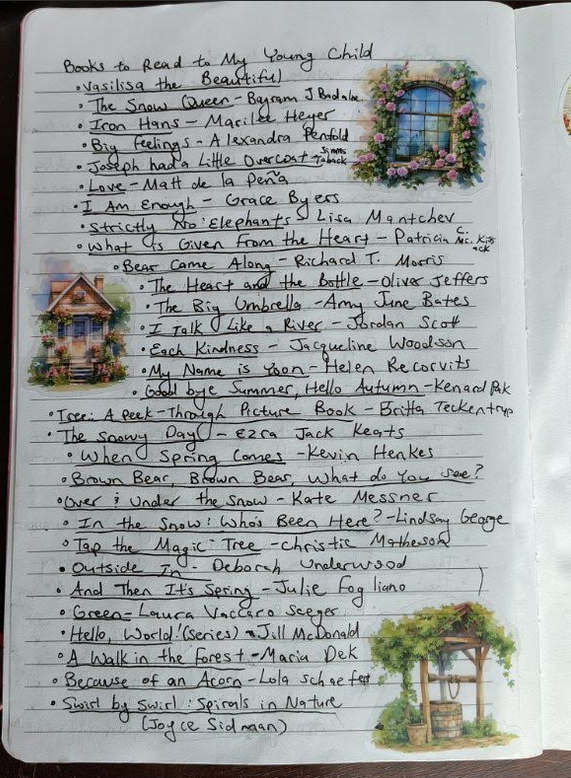 Books to Read to My Young Child
• Vasilisa the Beautiful
• The Snow Queen - Bagram J
• Iron Hans - Marilee Heyer
• Big Feelings - Alexandra Penfold
• Joseph had a Little Overcoat - Simms Taback
• Love - Matt de la Peña
• I Am Enough - Grace Byers
• Strictly No Elephants - Lisa Mantchev
• What is Given From the Heart - Patricia C. Mc. Kissack
• Bear Came Along - Richard T. Morris
• The Heart and the Bottle - Oliver Jeffers
• The Big Umbrella - Amy June Bates
• I Talk Like a River - Jordan Scott
• Each Kindness - Jacqueline Woodson
• My Name is Yoon - Helen Recorvits
• Good bye Summer, Hello Autumn - Kenard Pak
• Tree: A Peek-Through Picture Book - Britta Teckentrup
• The Snowy Day - Ezra Jack Keats
• When Spring Comes - Kevin Henkes
• Brown Bear, Brown Bear, What do You See?
• Over & Under the Snow - Kate Messner
• In the Snow: Who's Been Here? - Lindsay George
• Tap the Magic Tree - Christie Matheson
• Outside In - Deborah Underwood
• And Then It's Spring - Julie Fogliano
• Green - Laura Vaccaro Seeger
• Hello, World! (series) - Jill McDonald
• A Walk in the Forest - Maria Dek
• Because of an Acorn - Lola Schaefer
• Swirl by Swirl: Spirals in Nature
(Joyce Sidmaan)